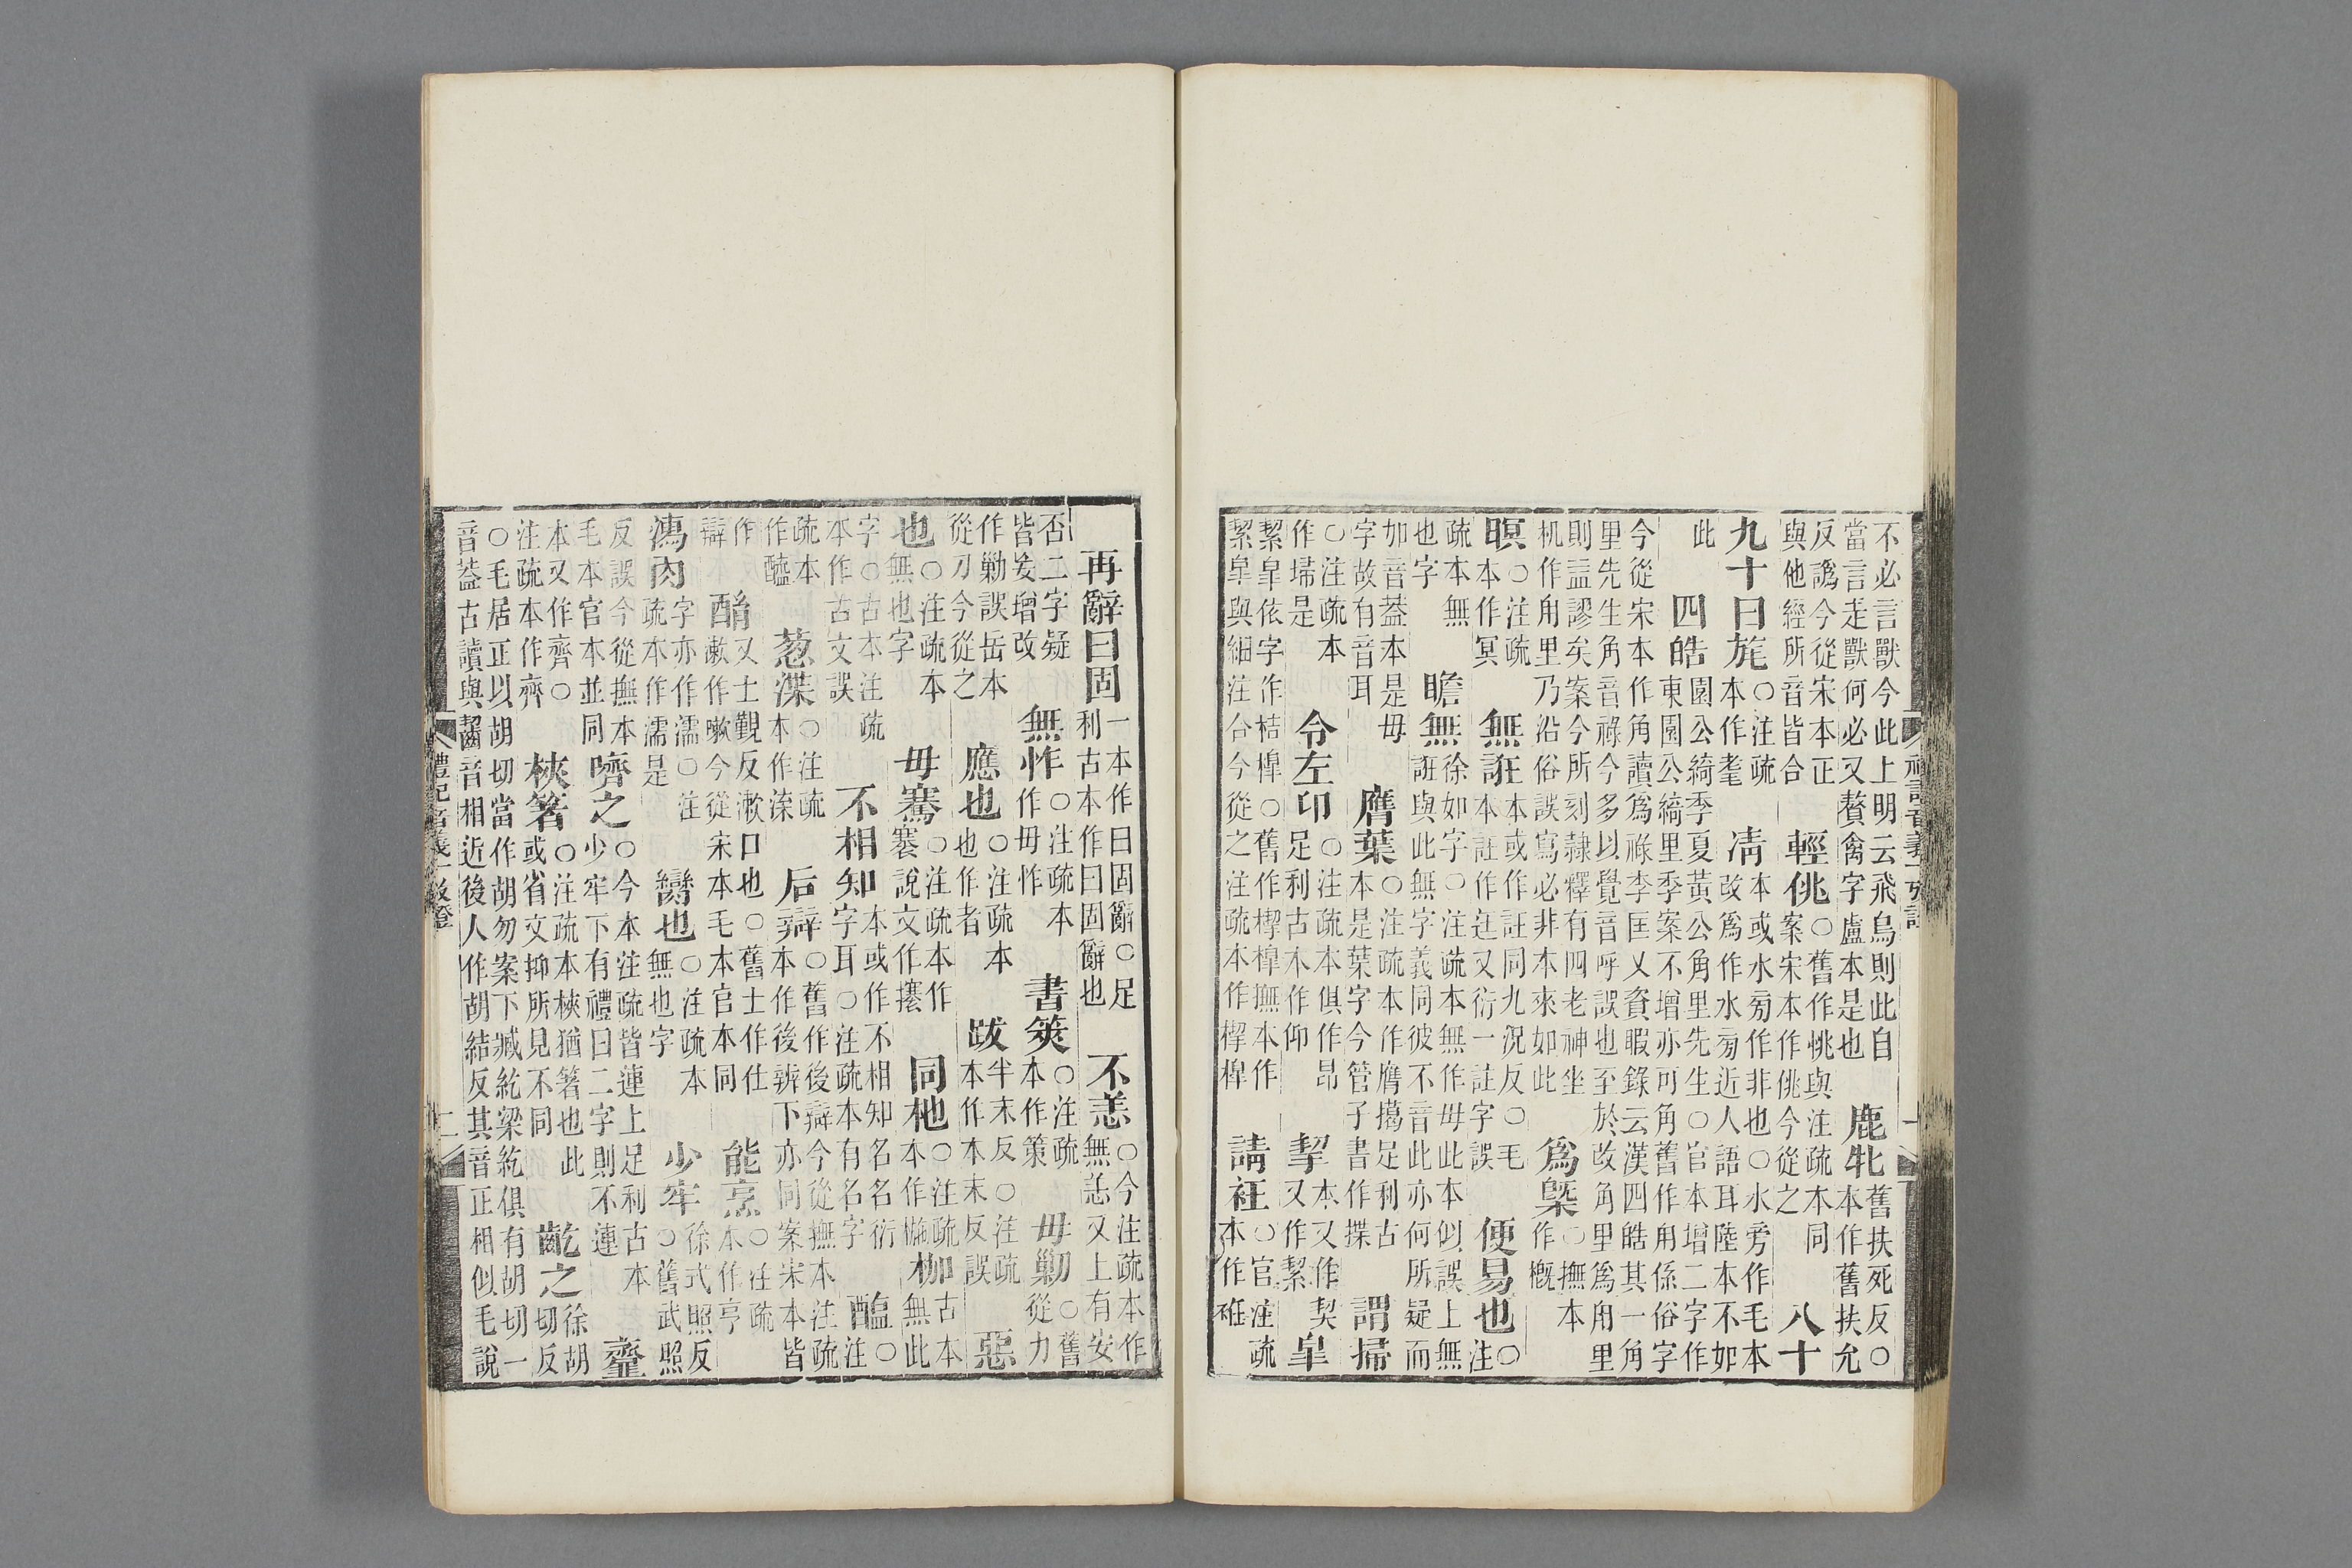 不必言獸今此上明云飛鳥則此自當言走獸何必又贅禽字盧本是也 鹿牝舊扶死反○本作舊扶允
反譌今從宋本正與他經所音皆合 輕佻○舊作恌與注疏本同案宋本作佻今從之 八十
九十曰旄○注疏本作耄 凊本或水旁作非也○水旁作毛本改爲作水旁近人語耳陸本不如
此 四皓園公綺季夏黃公角里先生○官本增二字作東園公綺里季案不增亦可角舊作甪係俗字
今從宋本作角讀爲祿李匡乂資暇錄云漢四皓其一角里先生角音祿今多以覺音呼誤也至於改角里爲甪里
則益謬矣案今所刻隸釋有四老神坐机作甪里乃沿俗誤寫必非本來如此 爲槩○撫本作槪
暝○注疏本作冥 無誑本或作註同九況反○毛本註作迋又衍一註字誤 便易也○注
疏本無也字 瞻無徐如字○注疏本無作毋此本似誤上無誑與此無字義同彼不音此亦何所疑而
加音葢本是毋字故有音耳 膺葉○注疏本作膺擖足利古本是葉字今管子書作揲 謂掃
○注疏本作埽是 令左卬○注疏本俱作昂足利古本作仰 挈本又作契又作絜 皐
絜皐依字作桔橰○舊作楔橰撫本作絜皐與細注合今從之注疏本作楔橰 請衽○官注疏本作袵
再辭曰固一本作曰固辭○足利古本作曰固辭也 不恙○今注疏本作無恙又上有安
否二字疑皆妄增改 無怍○注疏本作毋怍 書筴○注疏本作策 毋勦○舊從力
作勦誤岳本從刀今從之 應也○注疏本也作者 跋半末反○注疏本作本末反誤 惡
也○注疏本無也字 毋騫○注疏本作褰說文作攐 同杝○注疏本作椸 枷古本無此
字○古本注疏本作古文誤 不相知本或作不相知名名衍字耳○注疏本有名字 醢○注
疏本作醯 葱渫○注疏本作㴲 后辯○舊作後辯今從撫本注疏本作後辨下亦同案宋本皆
作辯 酳又士覲反漱口也○舊士作仕漱作嗽今從宋本毛本官本同 能烹○注疏本作亨
濡肉字亦作濡○注疏本作濡是 臠也○注疏本無也字 少牢徐式照反○舊武照
反誤今從撫本毛本官本並同 嚌之○今本注疏皆連上足利古本少牢下有禮曰二字則不連 齏
本又作齊○注疏本作齊 梜箸○注疏本梜猶箸也此或省文抑所見不同 齕之徐胡切切反
○毛居正以胡切當作胡勿案下臧紇梁紇俱有胡切一音葢古讀與齧音相近後人作胡結反其音正相似毛說
禮記音義一攷證